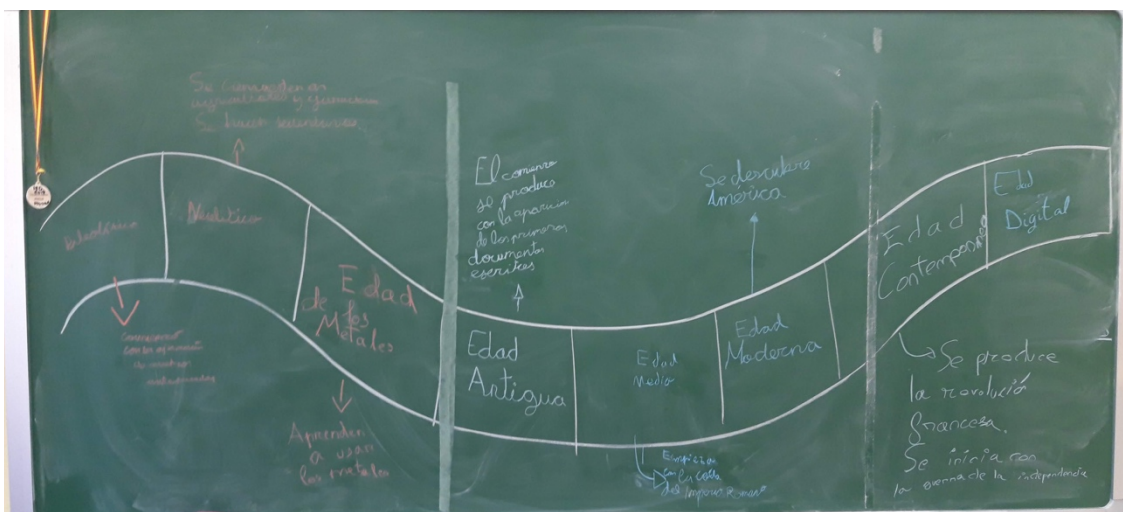 Se convierten en
agricultores y ganaderos
Se hacen sedentarios
Paleolítico
Neolítico
Comenzó
con la aparición
de nuestros
antepasados
Edad
de los
Metales
Aprenden
a usar
los metales
El comienzo
se produce
con la aparición
de los primeros
documentos
escritos
Edad
Antigua
Edad
Media
Empieza
en la caída
del Imperio Romano
Se descubre
America
Edad
Moderna
Edad
Contemporá
Edad
Digital
Se produce
la revolució
francesa.
Se inicia con
la guerra de la independencia